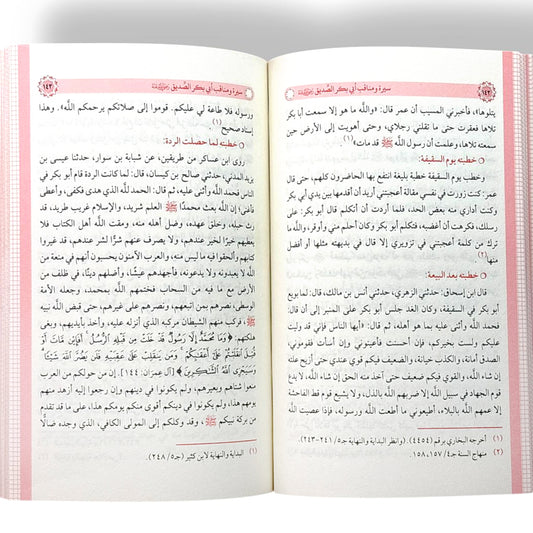 سيرة ومناقب أبي بكر الصِّديق
١٤٢
يتلوها»، فأخبرني المسيب أن عمر قال: «والله ما هو إلا سمعت أبا بكر
تلاها فعقرت حتى ما تقلني رجلاي، وحتى أهويت إلى الأرض حين
تلاها، وعلمت أن رسول الله ﷺ قد مات»(١).
خطبته يوم السقيفة:
وخطب يوم السقيفة خطبة بليغة انتفع بها الحاضرون كلهم، حتى قال
عمر: كنت زورت في نفسي مقالة أعجبتني أريد أن أقدمها بين يدي أبي بكر
وكنت أداري منه بعض الحد، فلمَّا أردت أن أتكلم قال أبو بكر: على
رسلك، فكرهت أن أغضبه، فتكلم أبو بكر وكان أحلم مني وأوقر، والله ما
ترك من كلمة أعجبتني في تزويري إلا قال في بديهته مثلها أو أفضل
منها(٢).
خطبته بعد البيعة:
قال ابن إسحاق: حدثني الزهري، حدثني أنس بن مالك، قال: لما بويع
أبو بكر في السقيفة، وكان الغد جلس أبو بكر على المنبر إلى أن قال:
فحمد الله وأثنى عليه بما هو أهله، ثم قال: «أيها الناس فإني قد وليت
عليكم ولست بخيركم، فإن أحسنت فأعينوني وإن أسأت فقوموني،
الصدق أمانة، والكذب خيانة، والضعيف فيكم قوي عندي حتى أزيح علته
إن شاء الله، والقوي فيكم ضعيف حتى آخذ منه الحق إن شاء الله، لا يدع
قوم الجهاد في سبيل الله إلا ضربهم الله بالذل، ولا يشيع قوم قط الفاحشة
إلا عمهم الله بالبلاء، أطيعوني ما أطعت الله ورسوله، فإذا عصيت الله
(١) أخرجه البخاري برقم (٤٤٥٤) (وانظر البداية والنهاية جـ٥/ ٢٤١-٢٤٣)
(٢) منهاج السنة جـ٤/ ١٥٧، ١٥٨.
سيرة ومناقب أبي بكر الصِّديق
١٤٣
ورسوله فلا طاعة لي عليكم. قوموا إلى صلاتكم يرحمكم الله». وهذا
إسناد صحيح(١).
خطبته لما حصلت الردة:
روى ابن عساكر من طريقين، عن شبابة بن سوار، حدثنا عيسى بن
يزيد المدني، حدثني صالح بن كيسان، قال: لما كانت الردة قام أبو بكر في
الناس فحمد الله وأثنى عليه، ثم قال: الحمد لله الذي هدى فكفى، وأعطى
فأغنى، إن الله بعث محمدًا ﷺ والعلم شريد، والإسلام غريب طريد، قد
رث حبله، وخلق عهده، وضل أهله منه، ومقت الله أهل الكتاب فلا
يعطهم خيرًا لخير عندهم، ولا يصرف عنهم شرًّا لشر عندهم، قد غيروا
كتابهم وألحقوا فيه ما ليس منه، والعرب الآمنون يحسبون أنهم في منعة من
الله لا يعبدونه ولا يدعونه، فأجهدهم عيشًا، وأضلهم دينًا، في ظلف من
الأرض مع ما فيه من السحاب فختمهم الله بمحمد، وجعلهم الأمة
الوسطى، نصرهم بمن اتبعهم، ونصرهم على غيرهم، حتى قبض الله نبيه
ﷺ، فركب منهم الشيطان مركبه الذي أنزله عليه، وأخذ بأيديهم، وبغى
هلكتهم: ﴿وَمَا مُحَمَّدٌ إِلَّا رَسُولٌ قَدْ خَلَتْ مِن قَبْلِهِ الرُّسُلُ ۚ أَفَإِين مَّاتَ أَوْ
قُتِلَ انقَلَبْتُمْ عَلَىٰ أَعْقَابِكُمْ ۚ وَمَن يَنقَلِبْ عَلَىٰ عَقِبَيْهِ فَلَن يَضُرَّ اللَّهَ شَيْئًا ۗ
وَسَيَجْزِي اللَّهُ الشَّاكِرِينَ﴾ [آل عِمرَان: ١٤٤]، إن من حولكم من العرب
منعوا شتاهم وبعيرهم، ولم يكونوا في دينهم وإن رجعوا إليه أزهد منهم
يومهم هذا، ولم يكونوا في دينكم أقوى منكم يومكم هذا، على ما قد تقدم
من بركة نبيكم ﷺ، وقد وكلكم إلى المولى الكافي، الذي وجده ضالًّا
(١) البداية والنهاية لابن كثير (جـ٥/ ٢٤٨).